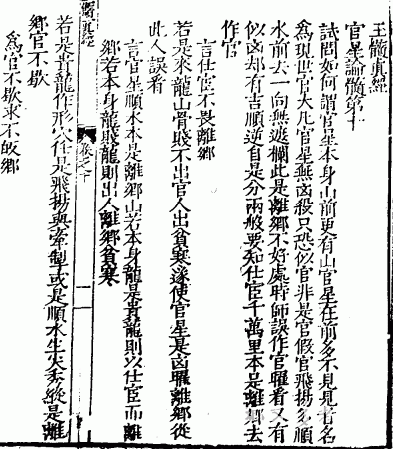 玉髓真經
官星論髓第十
試問如何謂官星本身山前更有山官星在前多不見見者名
為現世官大凡官星無凶殺只恐似官非是官假官飛揚多順
水前去一向無遮攔此是離鄉不好處時師誤作官曜看又有
似凶却有吉順逆自是分兩般要知仕宦千萬里本是離鄉去
作官
言仕宦不畏離鄉
若是來龍山骨賤不出官人出貧寒遂使官星是凶曜離鄉從
此人誤看
言官星順水本是離鄉山若本身龍是貴龍則以仕宦而離
鄉若本身龍賤龍則出人離鄉貧寒
若是貴龍作形穴任是飛揚與牽掣或是順水生火秀縱是離
鄉官不歇
為官不歇求不故鄉